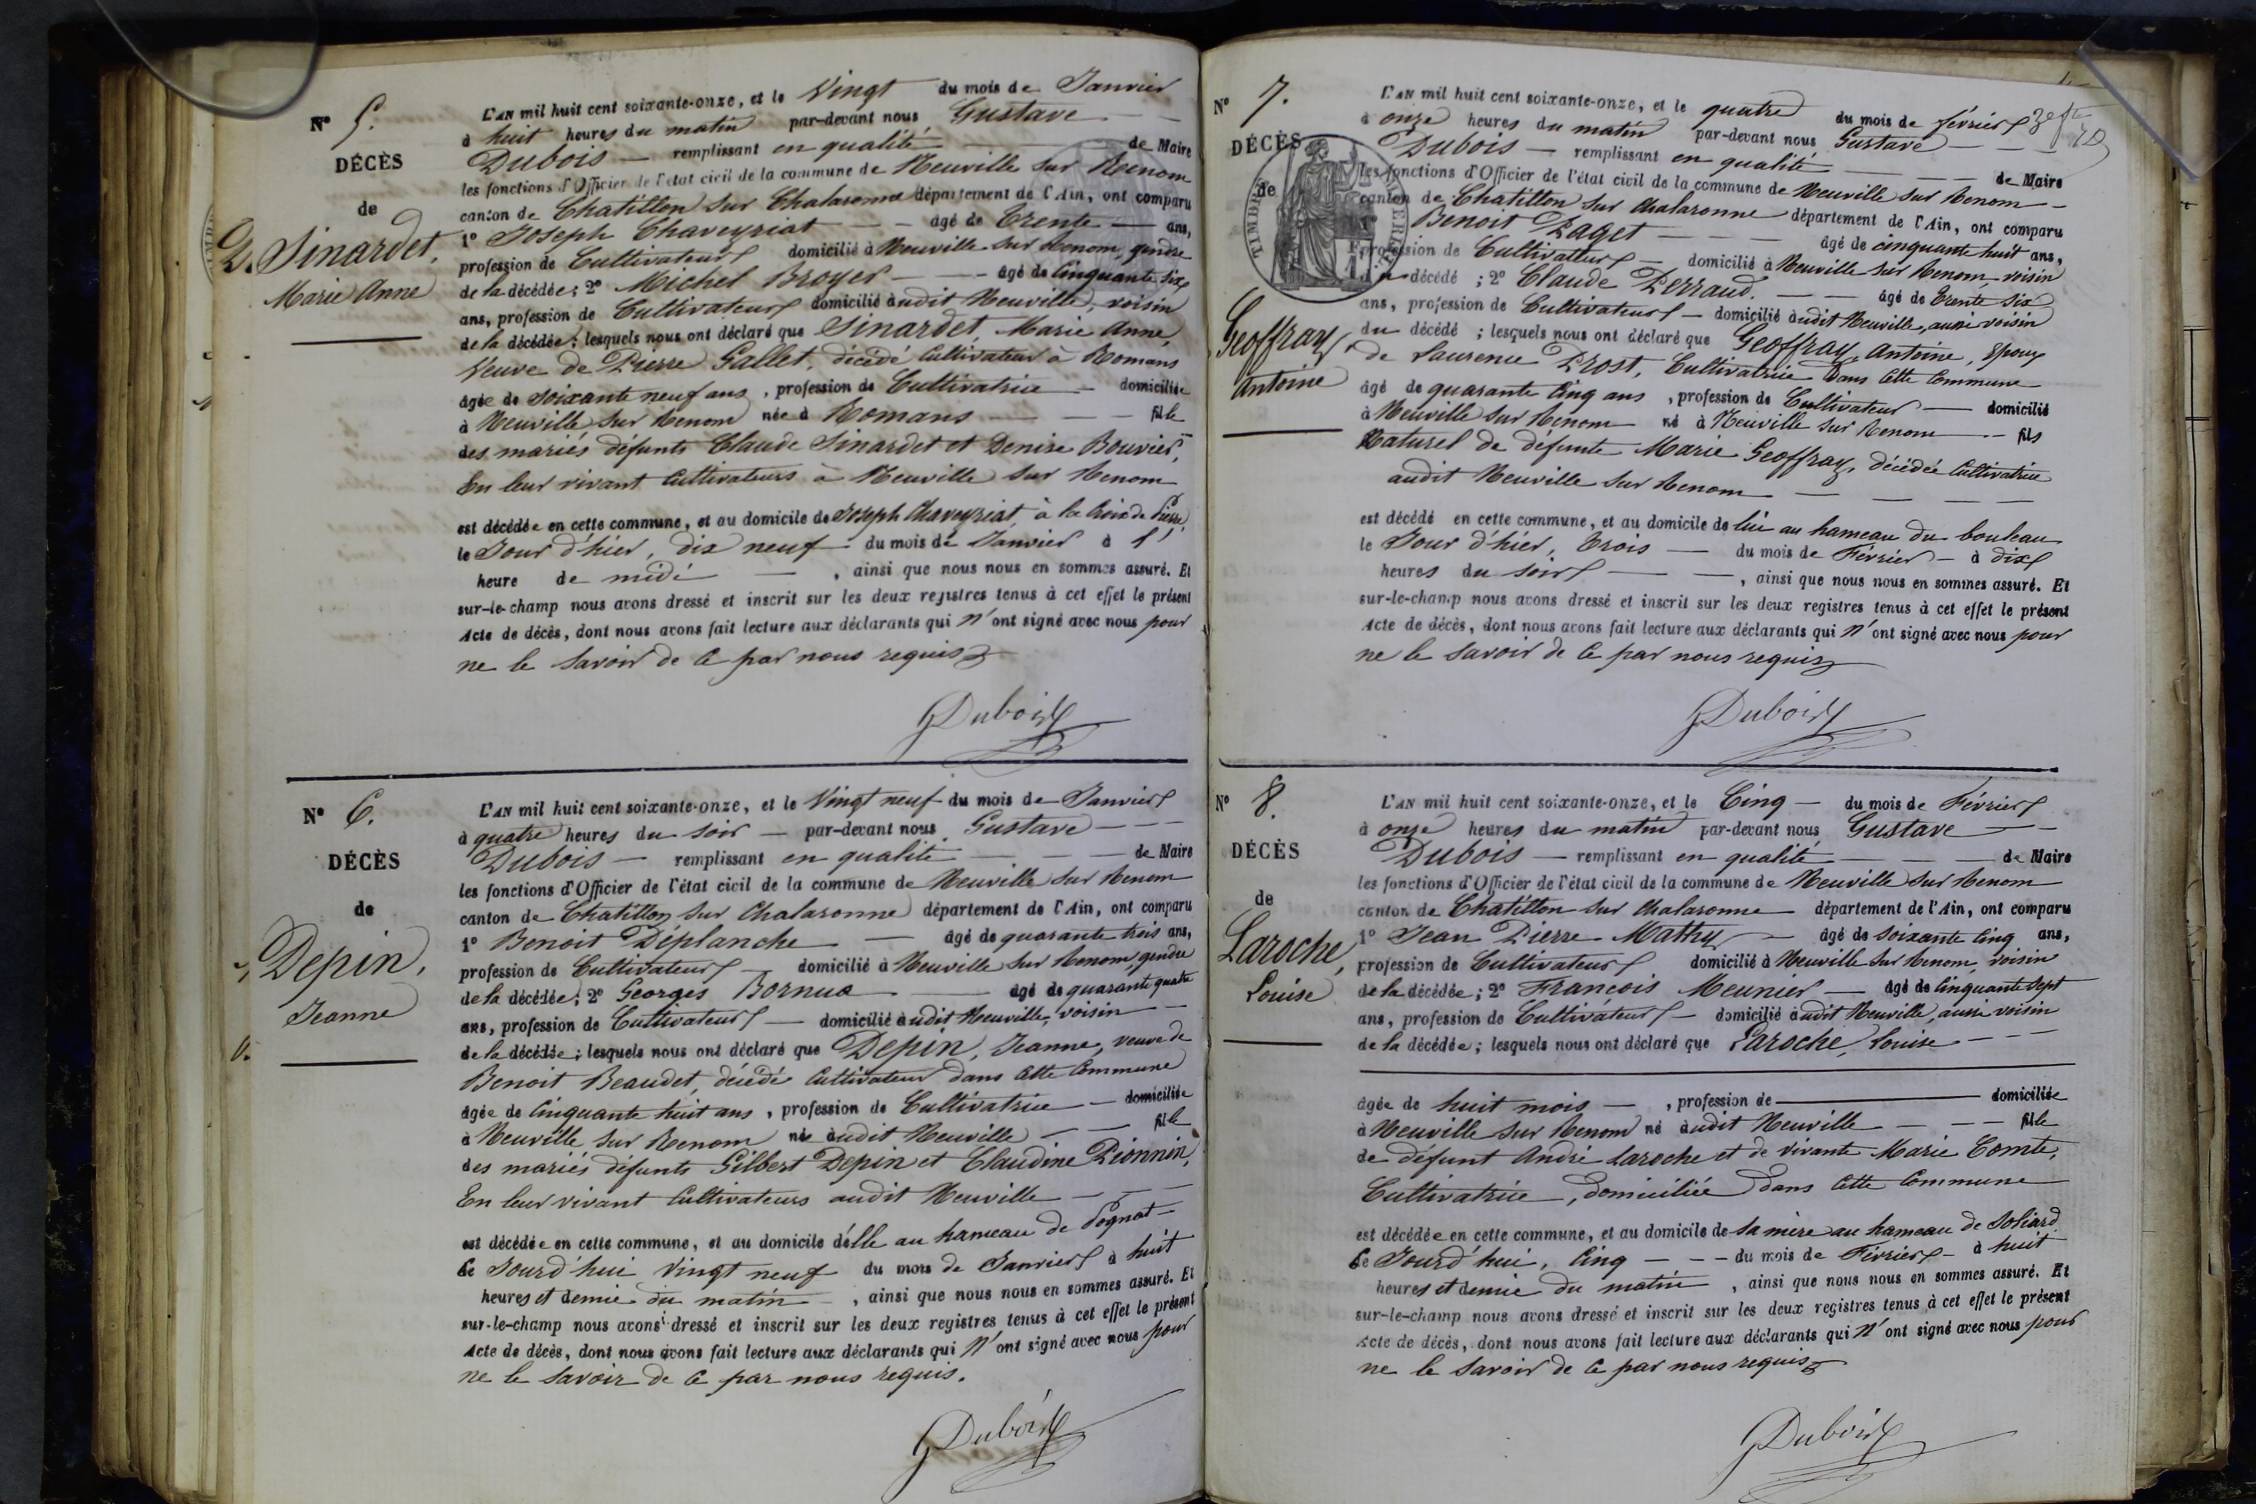 N° 5.
DÉCÈS
de
Sinardet,
Marie Anne
L'AN mil huit cent soixante-onze, et le Vingt du mois de Janvier
à huit heures du matin par-devant nous Gustave
Dubois — remplissant en qualité — de Maire
les fonctions d'Officier de l'état civil de la commune de Neuville sur Renom
canton de Chatillon sur Chalaronne département de l'Ain, ont comparu
1° Joseph Chaveyriat — âgé de Trente — ans,
profession de Cultivateur domicilié à Neuville sur Renom, gendre
de la décédée; 2° Michel Broyer — âgé de Cinquante six
ans, profession de Cultivateur domicilié audit Neuville, voisin
de la décédée; lesquels nous ont déclaré que Sinardet, Marie Anne,
Veuve de Pierre Gallet, décédé Cultivateur à Romans
âgée de soixante neuf ans, profession de Cultivatrice — domiciliée
à Neuville sur Renom née à Romans — fille
des mariés défunts Claude Sinardet et Denise Bouvier,
En leur vivant Cultivateurs à Neuville sur Renom
est décédée en cette commune, et au domicile de Joseph Chaveyriat, à la Croix de Pierre,
le Jour d'hier, dix neuf du mois de Janvier à 1
heure de midi — , ainsi que nous nous en sommes assuré. Et
sur-le-champ nous avons dressé et inscrit sur les deux registres tenus à cet effet le présent
Acte de décès, dont nous avons fait lecture aux déclarants qui n'ont signé avec nous pour
ne le savoir de ce par nous requis
GDubois
N° 6.
DÉCÈS
de
Depin,
Jeanne
L'AN mil huit cent soixante-onze, et le Vingt neuf du mois de Janvier
à quatre heures du soir — par-devant nous Gustave — — —
Dubois — remplissant en qualité — — — de Maire
les fonctions d'Officier de l'état civil de la commune de Neuville sur Renom
canton de Chatillon sur Chalaronne département de l'Ain, ont comparu
1° Benoit Déplanche — âgé de quarante trois ans,
profession de Cultivateur — domicilié à Neuville sur Renom, gendre
de la décédée; 2° Georges Bornua — âgé de quarante quatre
ans, profession de Cultivateur — domicilié audit Neuville, voisin —
de la décédée; lesquels nous ont déclaré que Depin, Jeanne, veuve de
Benoit Beaudet, décédé Cultivateur dans cette Commune
âgée de Cinquante huit ans, profession de Cultivatrice — domiciliée
à Neuville sur Renom né audit Neuville — — fille
des mariés défunts Gilbert Depin et Claudine Pionnin,
En leur vivant Cultivateurs audit Neuville — — —
est décédée en cette commune, et au domicile d'elle au hameau de Pognat —
Ce Jourd'hui Vingt neuf du mois de Janvier à huit
heures et demie du matin — , ainsi que nous nous en sommes assuré. Et
sur-le-champ nous avons dressé et inscrit sur les deux registres tenus à cet effet le présent
Acte de décès, dont nous avons fait lecture aux déclarants qui n'ont signé avec nous pour
ne le savoir de ce par nous requis.
GDubois
N° 7.
DÉCÈS
de
Geoffray,
Antoine
TIMBRE
L'AN mil huit cent soixante-onze, et le quatre du mois de février
à onze heures du matin par-devant nous Gustave — — —
Dubois — remplissant en qualité — — — de Maire
les fonctions d'Officier de l'état civil de la commune de Neuville sur Renom —
canton de Chatillon sur Chalaronne département de l'Ain, ont comparu
Benoit Paget — — — âgé de cinquante huit ans,
profession de Cultivateur — domicilié à Neuville sur Renom voisin
du décédé; 2° Claude Perraud. — — âgé de Trente six
ans, profession de Cultivateur — domicilié audit Neuville, aussi voisin
du décédé; lesquels nous ont déclaré que Geoffray, Antoine, Epoux
de Laurence Prost, Cultivatrice dans cette Commune
âgé de quarante Cinq ans, profession de Cultivateur — domicilié
à Neuville sur Renom né à Neuville sur Renom — fils
Naturel de défunte Marie Geoffray, décédée Cultivatrice
audit Neuville sur Renom — — — —
est décédé en cette commune, et au domicile de lui au hameau du bouleau
le Jour d'hier, Trois — du mois de Février — à dix
heures du soir — — , ainsi que nous nous en sommes assuré. Et
sur-le-champ nous avons dressé et inscrit sur les deux registres tenus à cet effet le présent
Acte de décès, dont nous avons fait lecture aux déclarants qui n'ont signé avec nous pour
ne le savoir de ce par nous requis
GDubois
N° 8.
DÉCÈS
de
Laroche,
Louise
L'AN mil huit cent soixante-onze, et le Cinq — du mois de Février
à onze heures du matin par-devant nous Gustave — —
Dubois — remplissant en qualité — — — de Maire
les fonctions d'Officier de l'état civil de la commune de Neuville sur Renom
canton de Chatillon sur Chalaronne — département de l'Ain, ont comparu
1° Jean Pierre Mathy — âgé de soixante Cinq ans,
profession de Cultivateur domicilié à Neuville sur Renom, voisin
de la décédée; 2° Francois Meunier — âgé de Cinquante sept
ans, profession de Cultivateur — domicilié audit Neuville, aussi voisin
de la décédée; lesquels nous ont déclaré que Laroche, Louise — —
âgée de huit mois — , profession de — domiciliée
à Neuville sur Renom né audit Neuville — — — fille
de défunt André Laroche et de vivante Marie Comte,
Cultivatrice, domiciliée dans cette Commune
est décédée en cette commune, et au domicile de sa mère au hameau de Soliard
Ce Jourd'hui, Cinq — — — du mois de Février — à huit
heures et demie du matin , ainsi que nous nous en sommes assuré. Et
sur-le-champ nous avons dressé et inscrit sur les deux registres tenus à cet effet le présent
Acte de décès, dont nous avons fait lecture aux déclarants qui n'ont signé avec nous pour
ne le savoir de ce par nous requis
GDubois